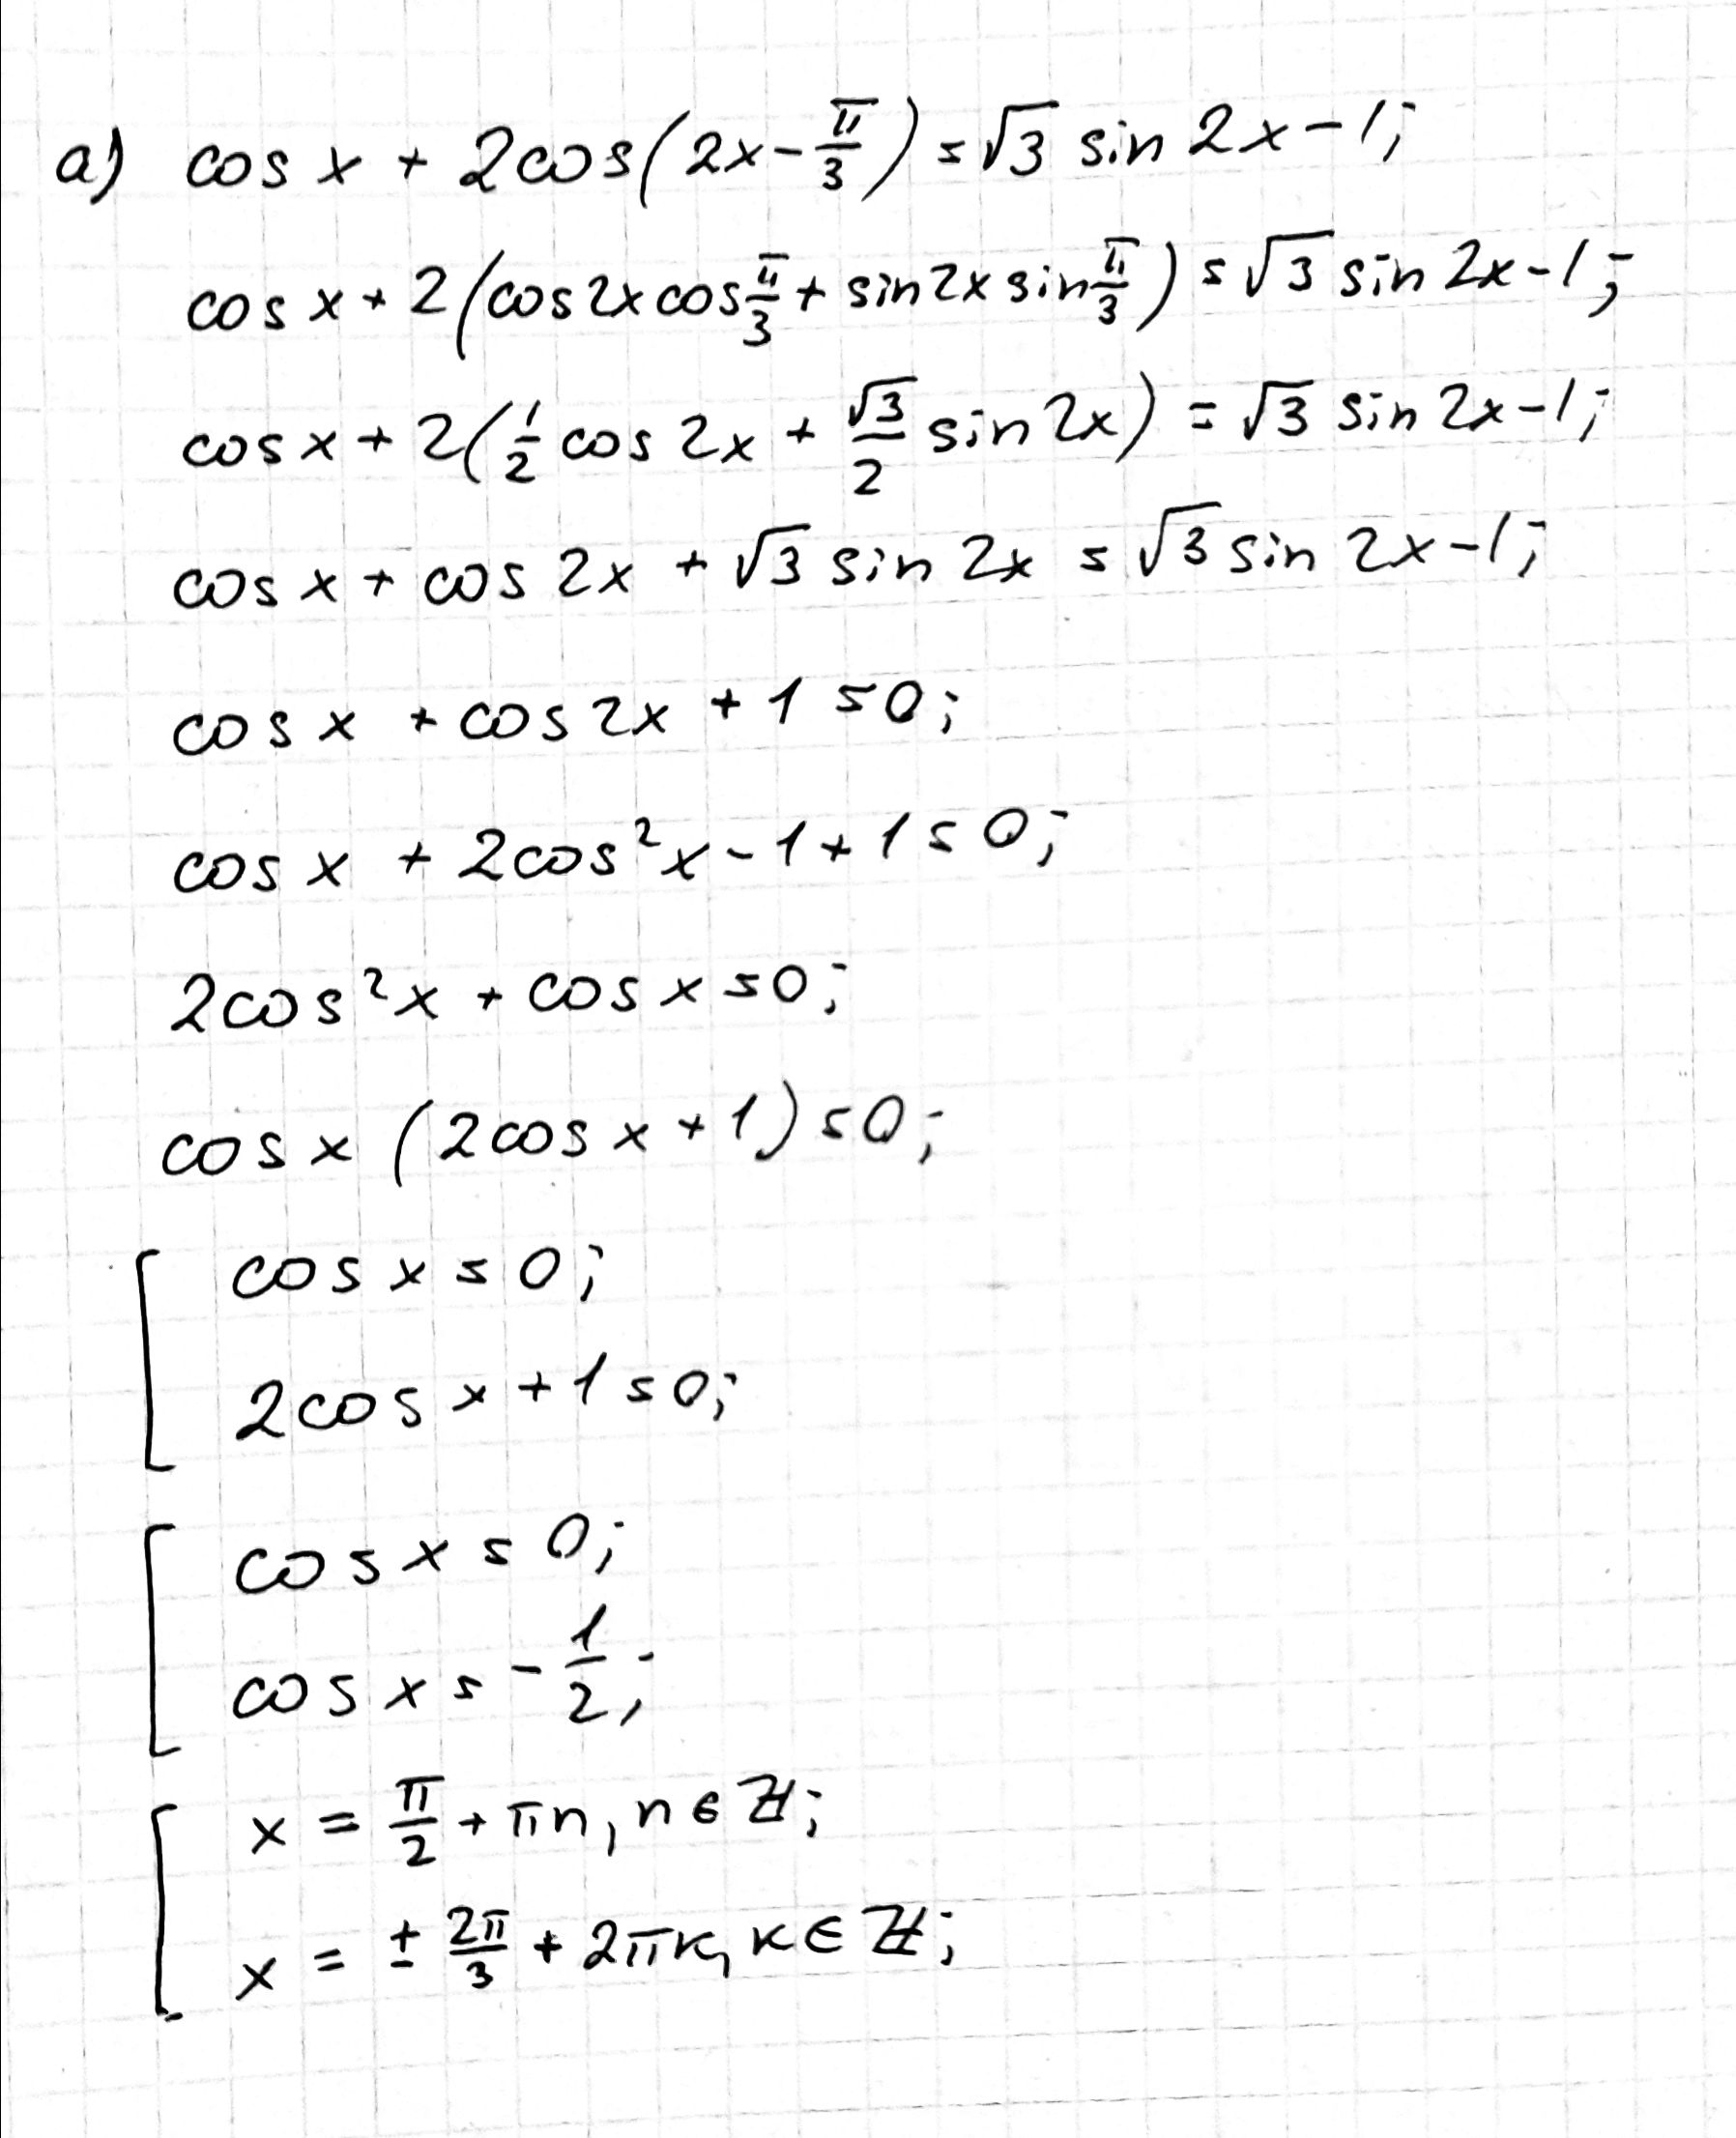 а) cos x + 2cos(2x - π/3) = √3 sin 2x - 1;
cos x + 2(cos 2x cos π/3 + sin 2x sin π/3) = √3 sin 2x - 1;
cos x + 2(1/2 cos 2x + √3/2 sin 2x) = √3 sin 2x - 1;
cos x + cos 2x + √3 sin 2x = √3 sin 2x - 1;
cos x + cos 2x + 1 = 0;
cos x + 2cos²x - 1 + 1 = 0;
2cos²x + cos x = 0;
cos x (2cos x + 1) = 0;
[ cos x = 0;
2cos x + 1 = 0;
[ cos x = 0;
cos x = - 1/2;
[ x = π/2 + πn, n ∈ ℤ;
x = ± 2π/3 + 2πk, k ∈ ℤ;